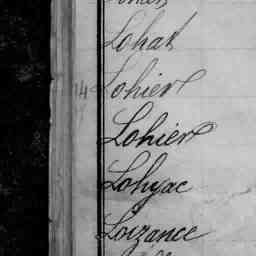 Lohat
14 Lohier
Lohier
Lohyac
Loizance